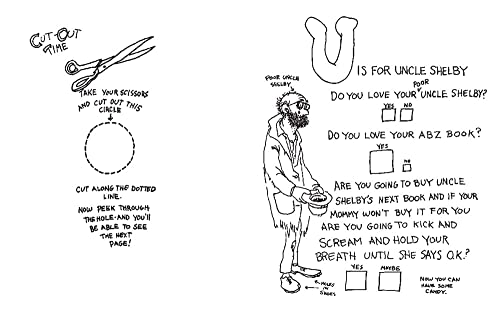 CUT-OUT
TIME
TAKE YOUR SCISSORS
AND CUT OUT THIS
CIRCLE
CUT ALONG THE DOTTED
LINE.
NOW PEEK THROUGH
THE HOLE-AND YOU'LL
BE ABLE TO SEE
THE NEXT
PAGE!
U IS FOR UNCLE SHELBY
POOR UNCLE
SHELBY
POOR
DO YOU LOVE YOUR UNCLE SHELBY?
YES NO
DO YOU LOVE YOUR ABZ BOOK?
YES
NO
ARE YOU GOING TO BUY UNCLE
SHELBY'S NEXT BOOK AND IF YOUR
MOMMY WON'T BUY IT FOR YOU
ARE YOU GOING TO KICK AND
SCREAM AND HOLD YOUR
BREATH UNTIL SHE SAYS O.K.?
YES MAYBE
NOW YOU CAN
HAVE SOME
CANDY.
HOLES
IN
SHOES